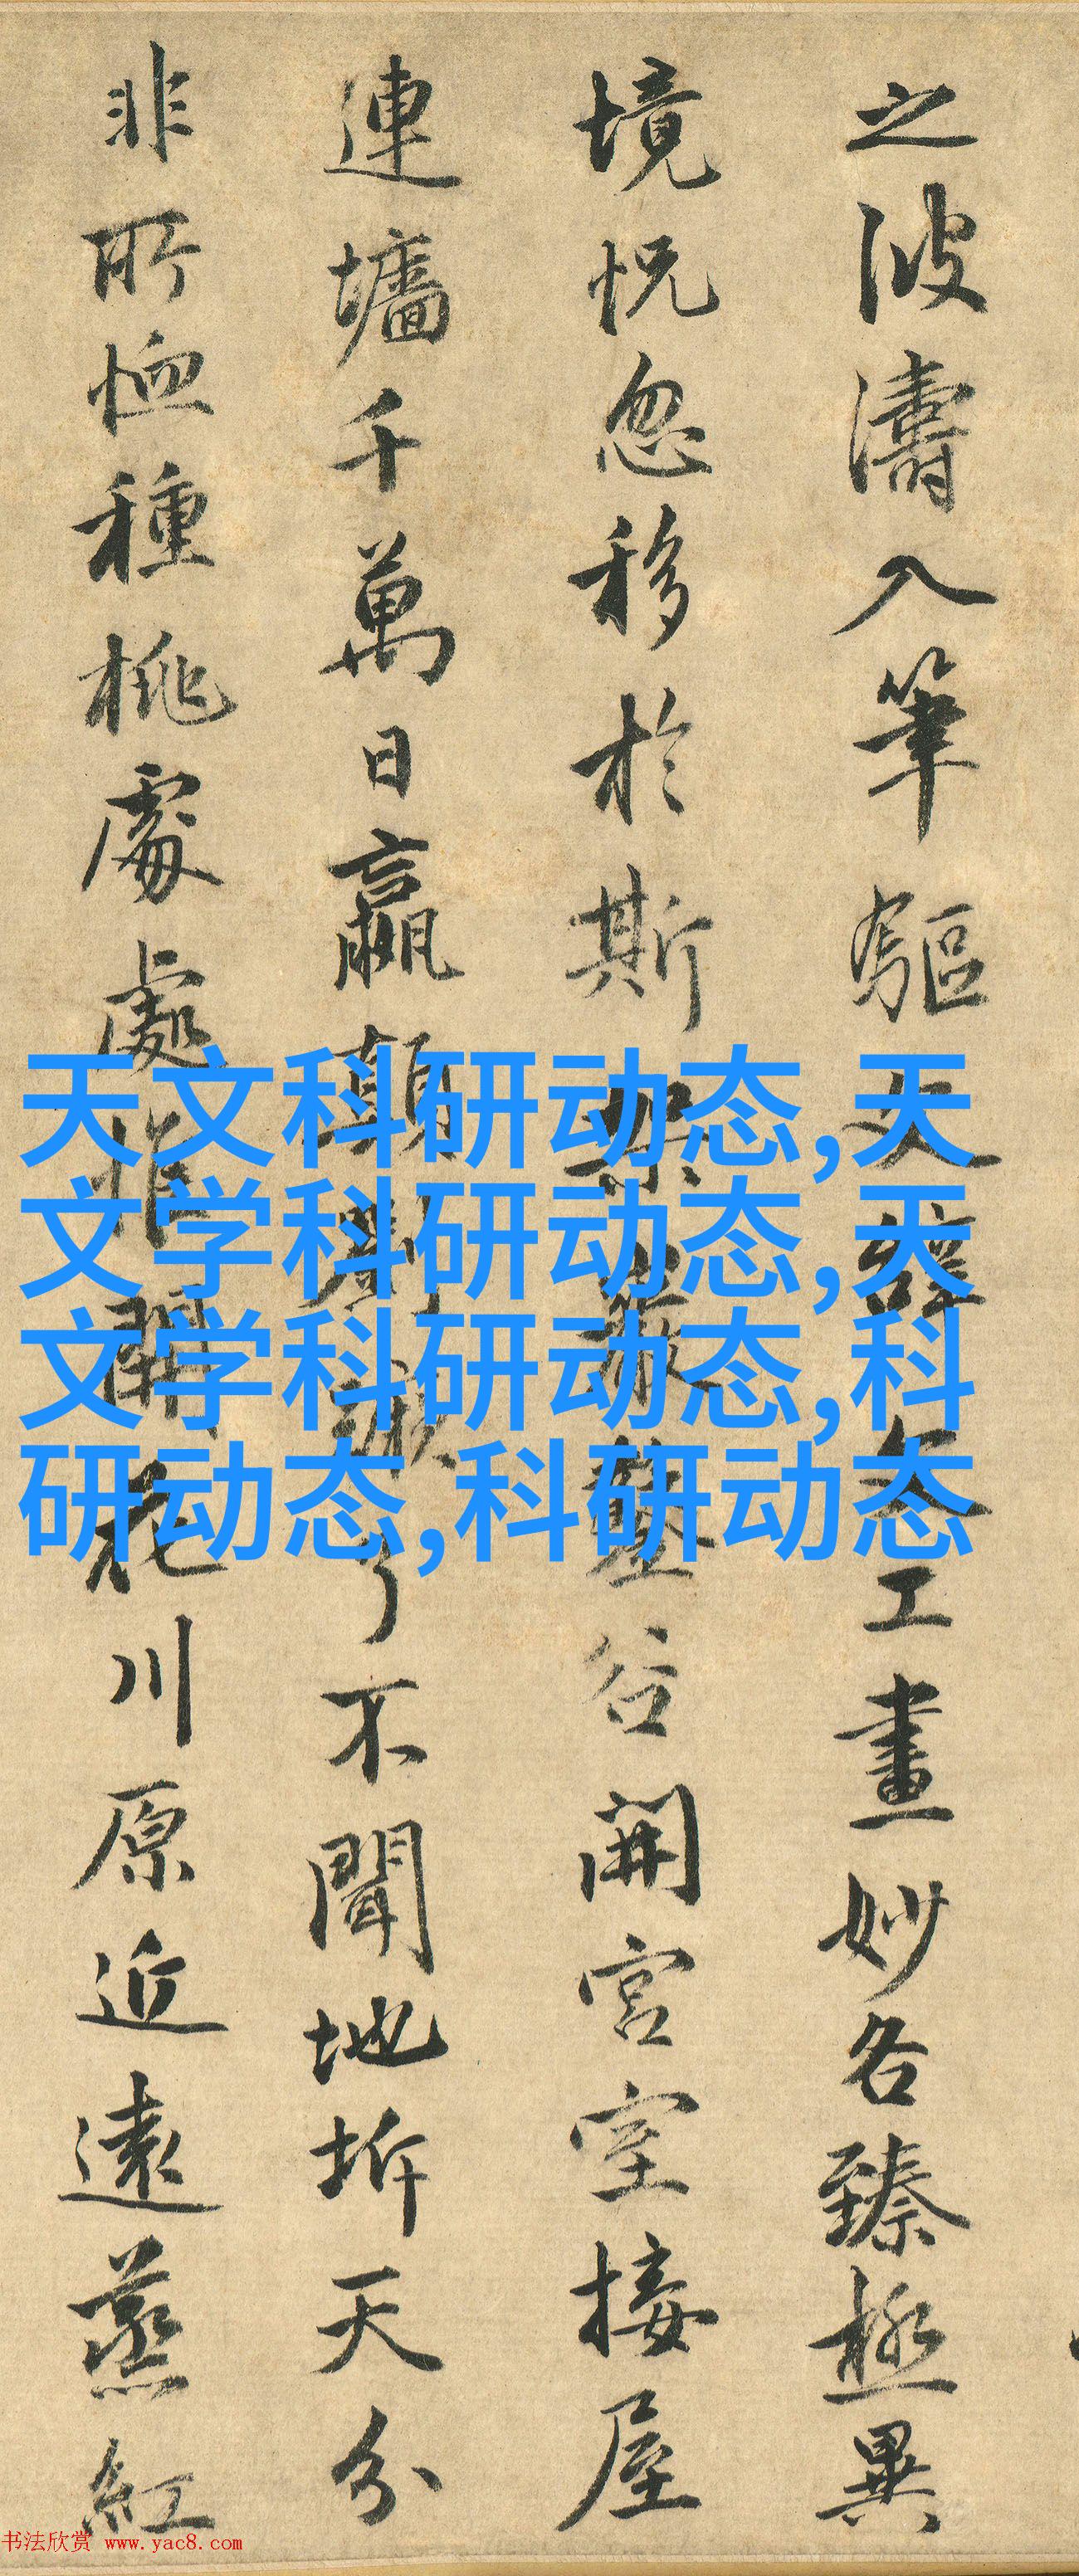 之波濤入筆驅文辭文工畫妙各臻極異
境怳忽移於斯架巖鑿谷開宮室接屋
連墻千萬日嬴顛劉蹶了不聞地坼天分
非所恤種桃處處惟開花川原近遠蒸紅
天文科研动态,天
文学科研动态,天
文学科研动态,科
研动态,科研动态
书法欣赏 www.yac8.com